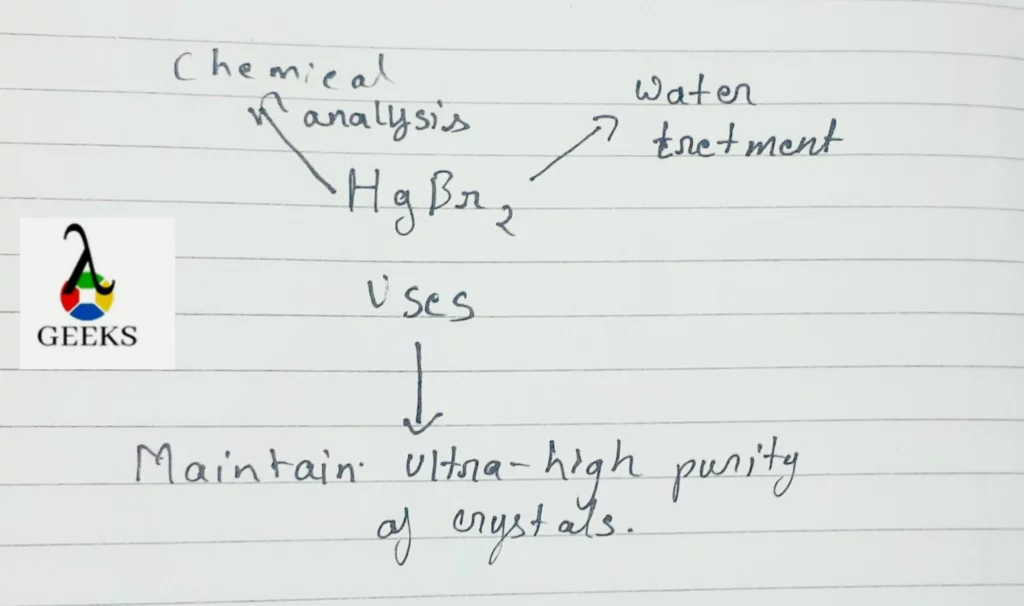 Chemical
analysis
Water
tretment
HgBr2
λ
GEEKS
Uses
Maintain ultra-high purity
of crystals.